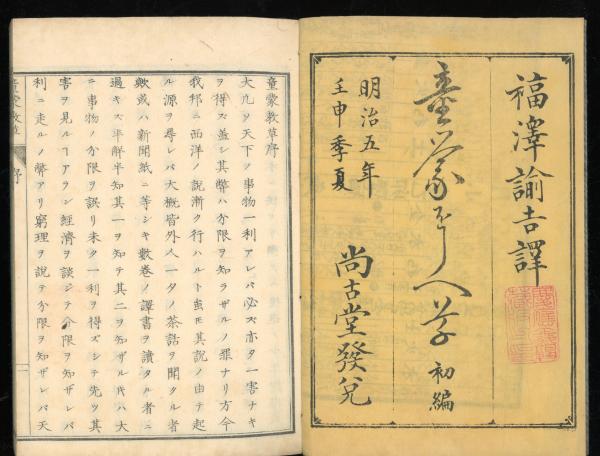 福澤諭吉譯
童蒙をしへ草 初編
明治五年
壬申季夏
尚古堂發兌
童蒙教草序
大凡ソ天下ノ事物一利アレバ必ズ亦タ一害ナキ
ヲ得ズ蓋シ其弊ハ分限ヲ知ラザルノ罪ナリ方今
我邦ニ西洋ノ説漸ク行ハルト雖モ其説ノ由テ起
ル源ヲ尋レバ大概皆外人一夕ノ茶話ヲ聞タル者
歟或ハ新聞紙ニ等シキ數巻ノ譯書ヲ讀タル者ニ
過キズ半解半知其一ヲ知テ其二ヲ知ザル氏ハ大
ニ事物ノ分限ヲ誤リ未タ一利ヲ得ズシテ先ツ其
害ヲ見ルヿアラン經濟ヲ談シテ分限ヲ知ザレバ
利ニ走ルノ弊アリ窮理ヲ説テ分限ヲ知ザレバ天
序
一